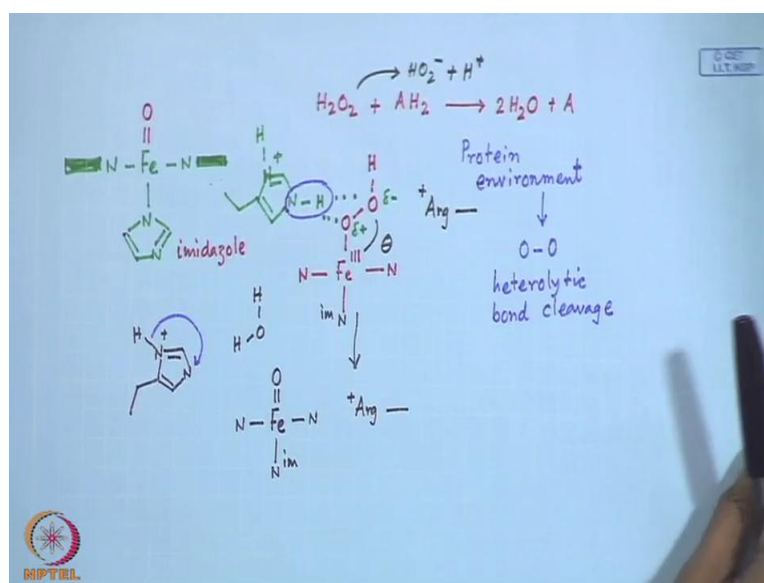 © CET
I.I.T. KGP
HO₂⁻ + H⁺
H₂O₂ + AH₂ ⟶ 2H₂O + A
O
N – Fe – N
N
N
imidazole
H
N +
N – H
H
O δ-
O δ+
θ
III
N – Fe – N
im N
+Arg —
Protein
environment
O – O
heterolytic
bond cleavage
H
N +
N
H
H O
O
N – Fe – N
N im
+Arg —
NPTEL